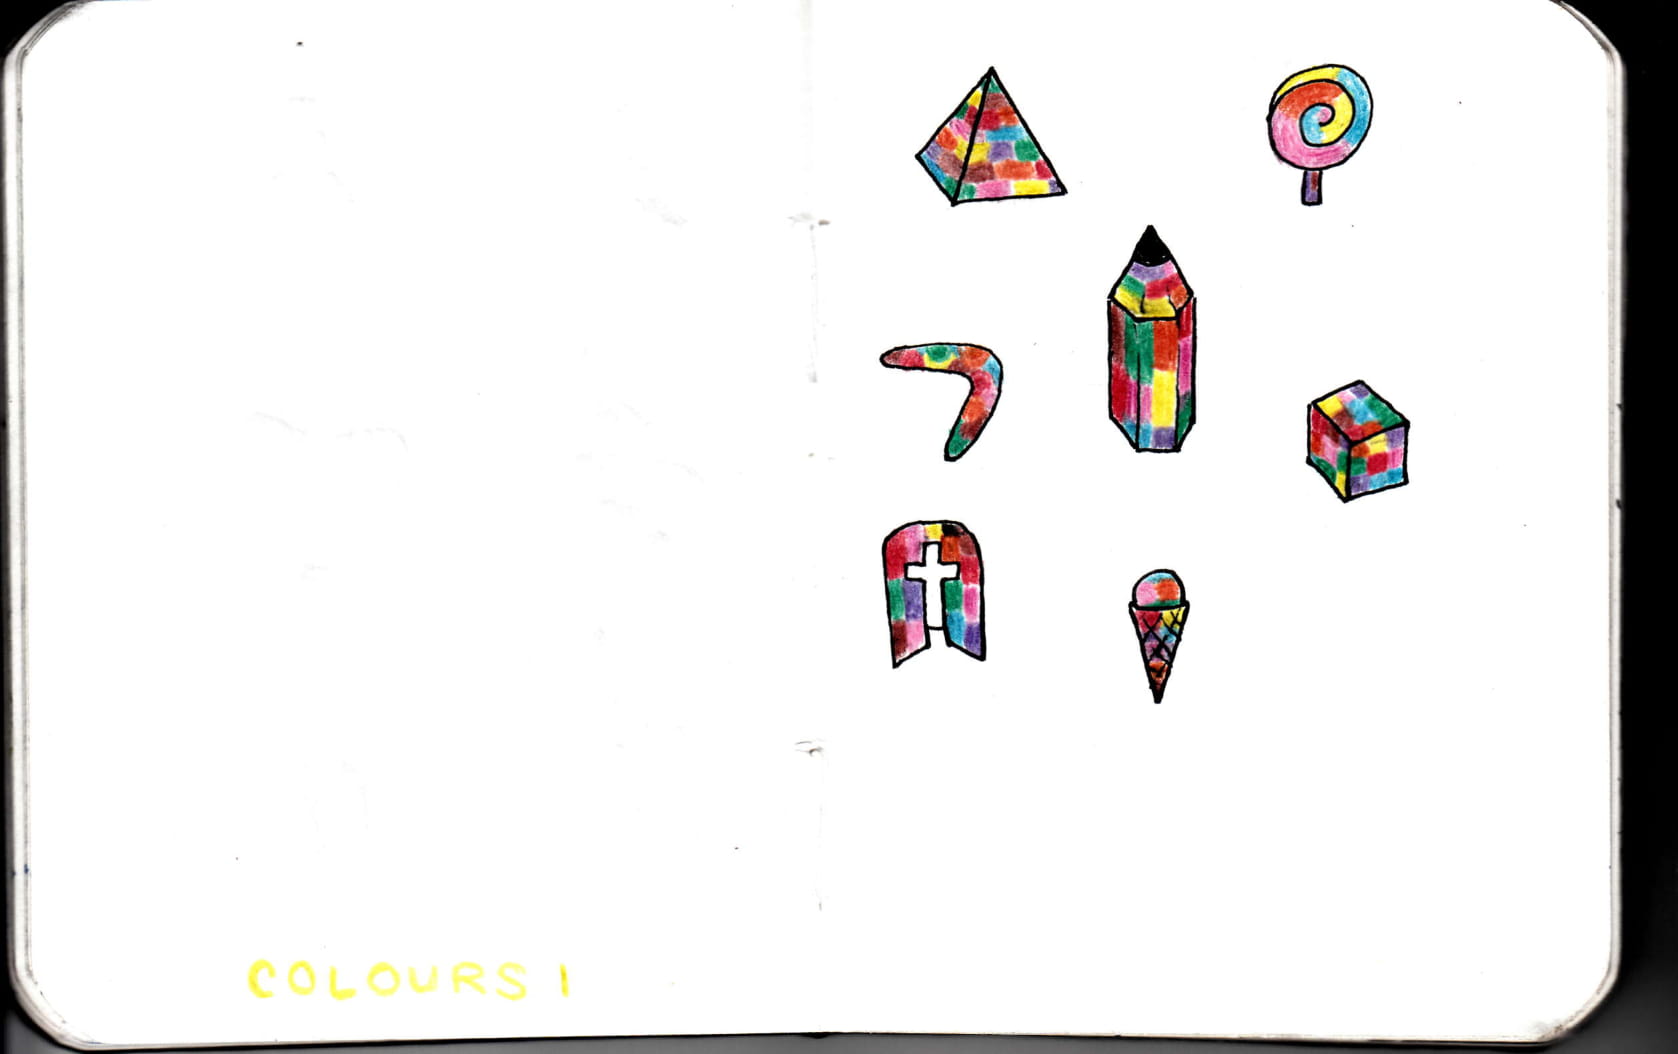 COLOURS 1